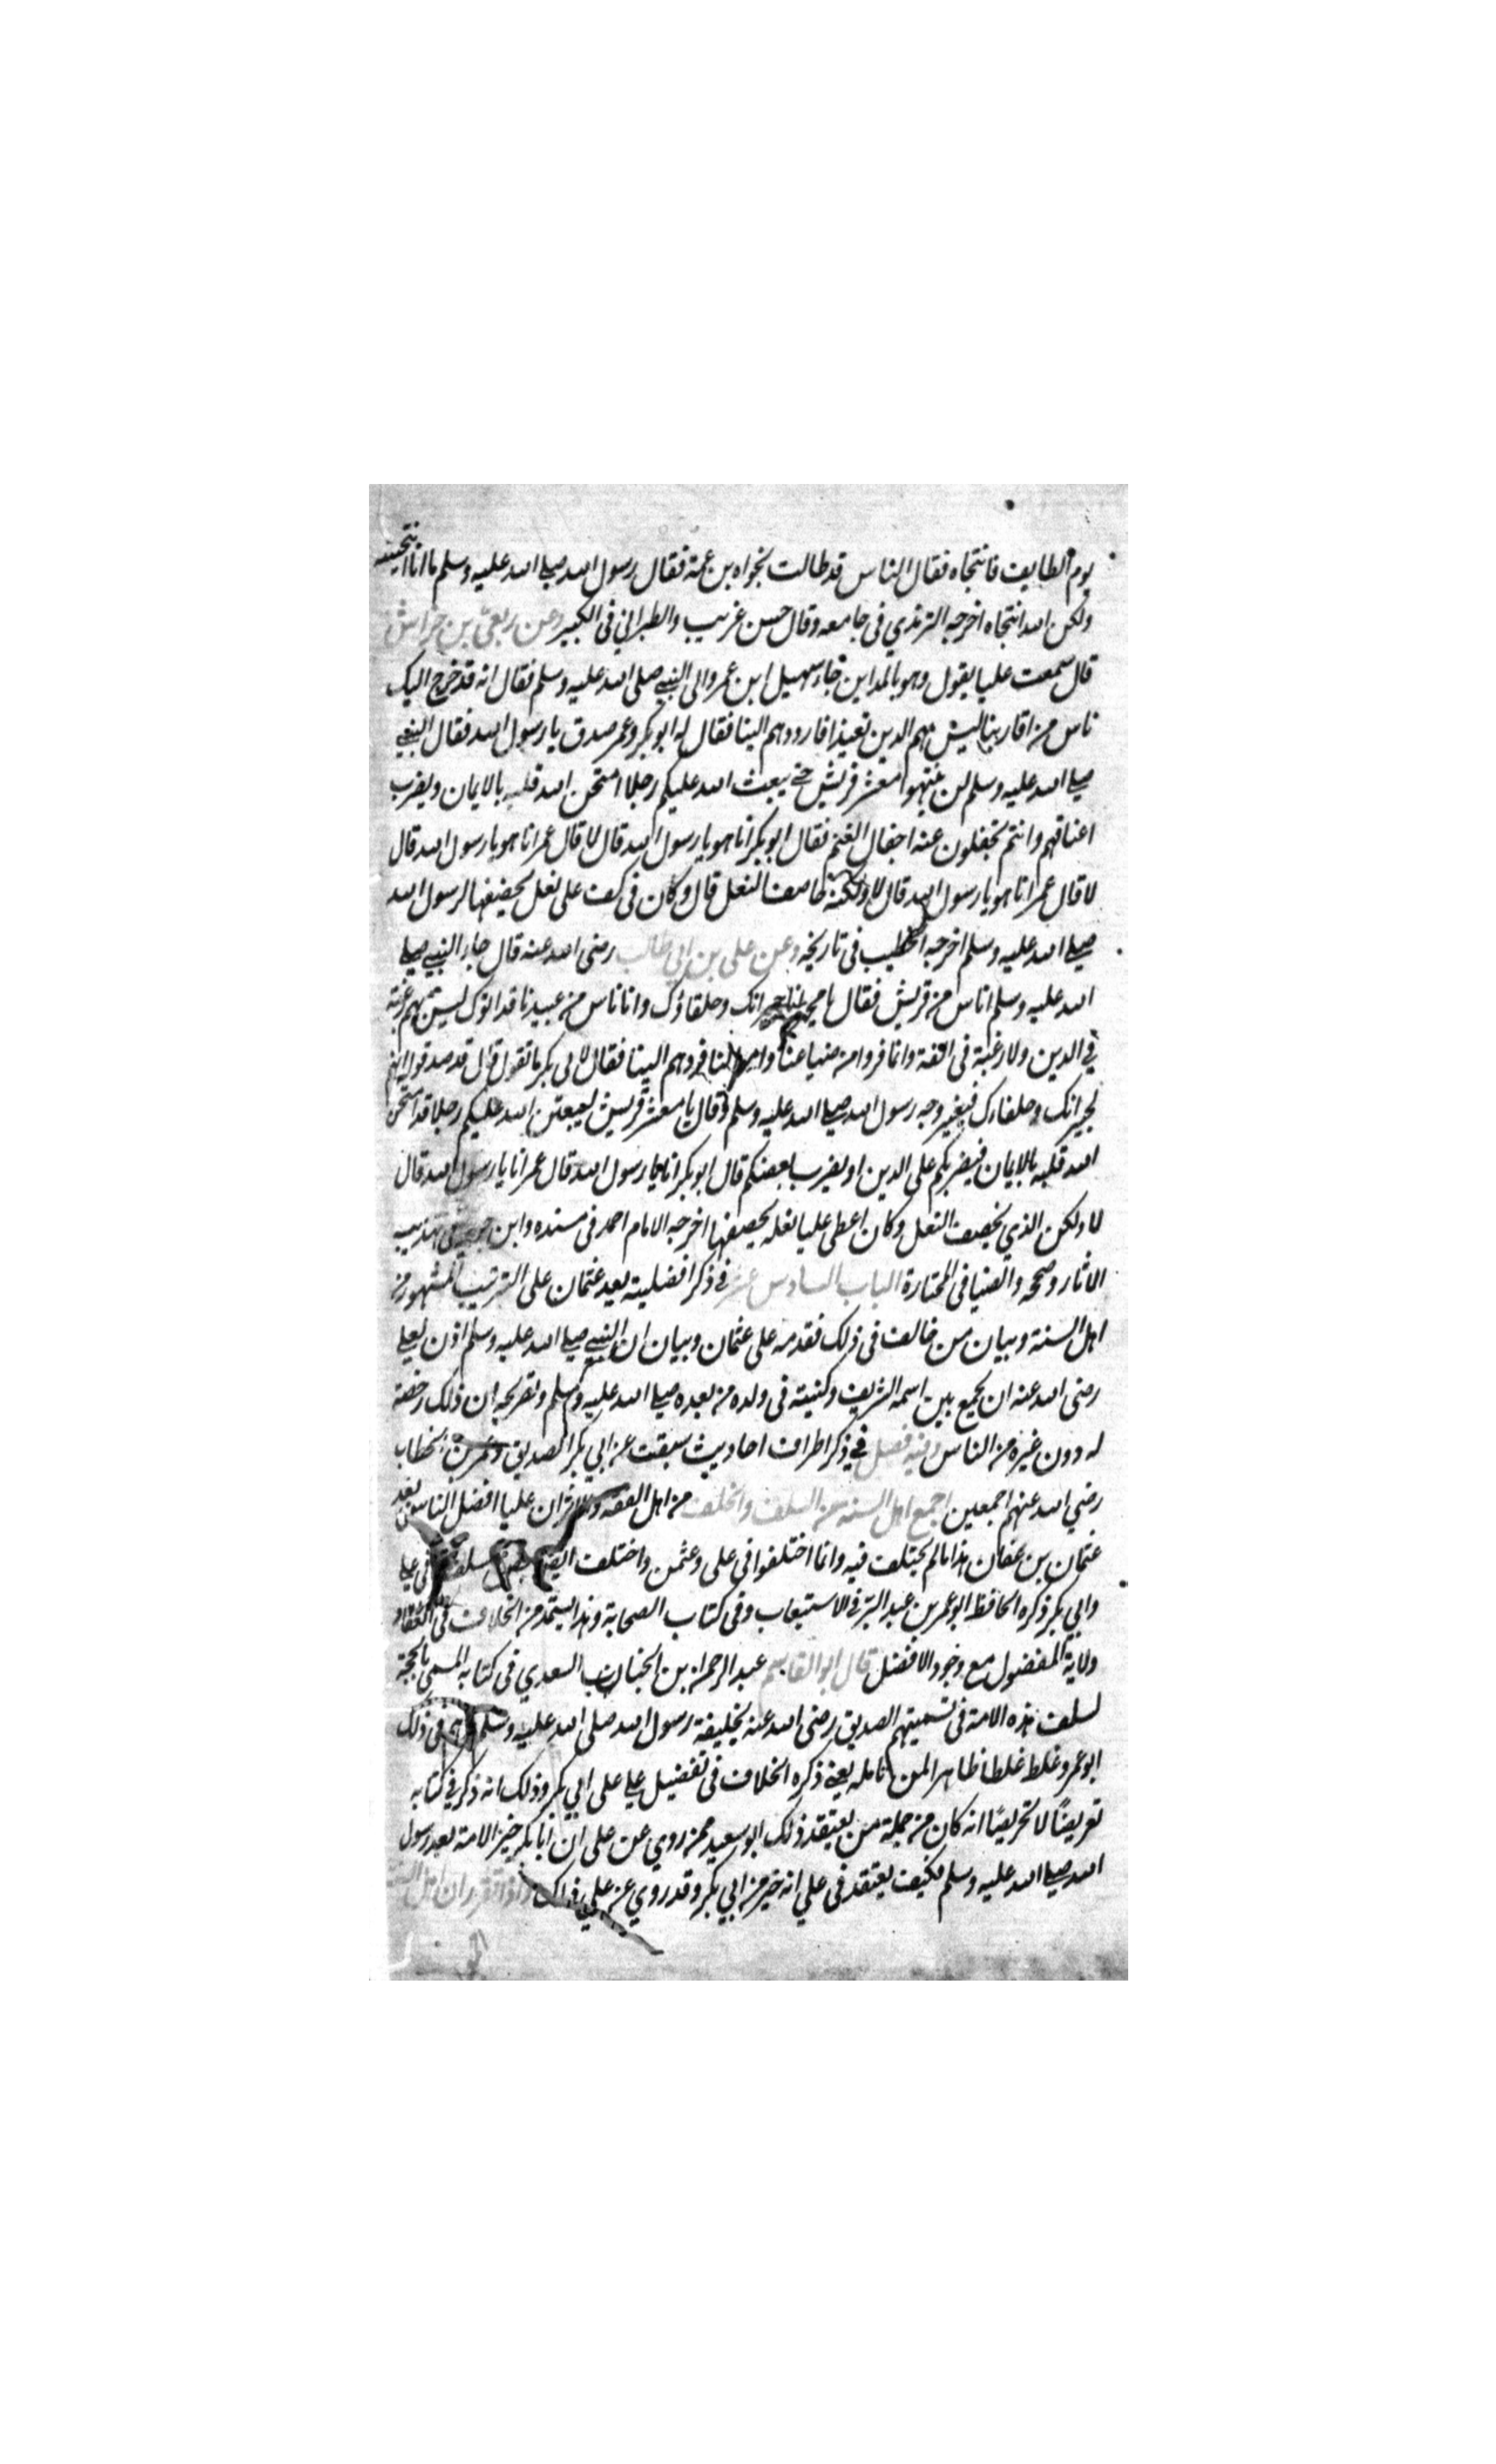 يوم الطايف فانتجاه فقال الناس قد طالت نجواه بن عمه فقال رسول الله صلى الله عليه وسلم ما انا انتجيته
ولكن الله انتجاه اخرجه الترمذي فى جامعه وقال حسن غريب والطبراني فى الكبير وعن ربعي بن خراش
قال سمعت عليا يقول وهو بالمداين جاء سهيل ابن عمرو الى النبي صلى الله عليه وسلم فقال انه قد خرج اليك
ناس من اقاربنا ليس بهم الدين تعيذا فارددهم الينا فقال له ابو بكر وعمر صدق يا رسول الله فقال النبي
صلى الله عليه وسلم لن تنتهوا معشر قريش حتى يبعث الله عليكم رجلا امتحن الله قلبه بالايمان ويضرب
اعناقهم وانتم تجفلون عنه اجفال الغنم فقال ابو بكر انا هو يا رسول الله قال لا قال عمر انا هو يا رسول الله قال
لا قال عمر انا هو يا رسول الله قال لا ولكنه خاصف النعل قال وكان فى كف على نعل يخصفها لرسول الله
صلى الله عليه وسلم اخرجه الخطيب فى تاريخه وعن على بن ابي طالب رضى الله عنه قال جاء النبي صلى
الله عليه وسلم اناس من قريش فقال يا محمد انا جيرانك وحلفاؤك وانا ناس من عبيدنا قد اتوك ليس بهم رغبة
في الدين ولا رغبة فى الفقه وانما فروا من ضياعنا واموالنا فردهم الينا فقال لابى بكر ما تقول قال قد صدقوا انهم
لجيرانك وحلفاءك فتغير وجه رسول الله صلى الله عليه وسلم وقال يا معشر قريش ليبعثن الله عليكم رجلا قد امتحن
الله قلبه بالايمان فيضربكم على الدين او يضرب بعضكم قال ابو بكر انا يا رسول الله قال عمر انا يا رسول الله قال
لا ولكن الذي يخصف النعل وكان اعطى عليا نعله يخصفها اخرجه الامام احمد فى مسنده وابن جرير فى تهذيب
الاثار وصححه والضيا فى المختارة الباب السادس عشر في ذكر افضليته بعد عثمان على الترتيب المشهور من
اهل السنة وبيان من خالف فى ذلك فقدمه على عثمان وبيان ان النبي صلى الله عليه وسلم اذن لعلي
رضى الله عنه ان يجمع بين اسمه الشريف وكنيته فى ولده من بعده صلى الله عليه وسلم وتصريحه ان ذلك رخصة
له دون غيره من الناس وفيه فصل في ذكر اطراف احاديث سبقت عن ابي بكر الصديق وعمر بن الخطاب
رضي الله عنهم اجمعين اجمع اهل السنة من السلف والخلف من اهل الفقه والاثر ان عليا افضل الناس بعد
عثمان بن عفان هذا مالم يختلف فيه وانما اختلفوا فى على وعثمن واختلف ايضا بعض السلف فى علي
وابي بكر ذكره الحافظ ابو عمر بن عبد البر في الاستيعاب وفى كتاب الصحابة وهذا يستمد من الخلاف فى انعقاد
ولاية المفضول مع وجود الافضل قال ابو القاسم عبد الرحمن بن الخباب السعدي فى كتابه المسمى بالحجة
لسلف هذه الامة فى تسميتهم الصديق رضى الله عنه بخليفة رسول الله صلى الله عليه وسلم فى ذلك
ابو عمرو غلط غلطا ظاهرا لمن تامله يعني ذكره الخلاف فى تفضيل علي على ابي بكر وذلك انه ذكر في كتابه
تعريضًا لا تحريضًا انه كان من جملة من يعتقد ذلك ابو سعيد ممن روي عن على ان ابا بكر خير الامة بعد رسول
الله صلى الله عليه وسلم فكيف يعتقد فى علي انه خير من ابي بكر وقد روي عن علي ذلك واذا تقرر ان اهل السنة